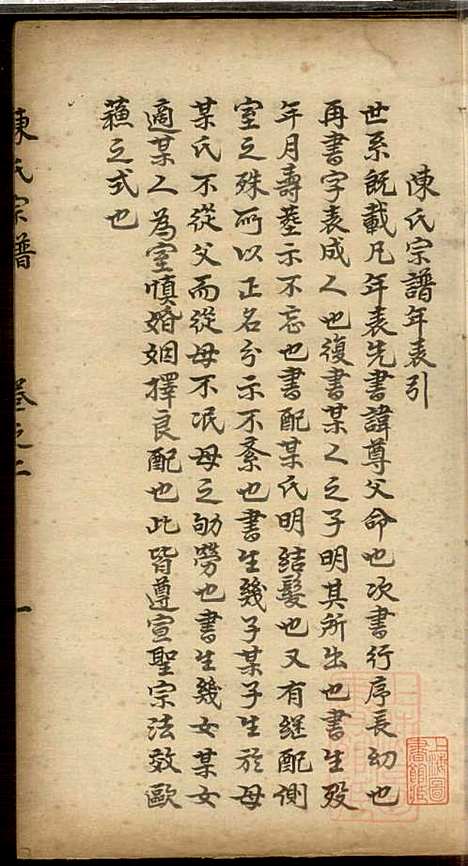 陳氏宗譜年表引
世系既載凡年表先書諱尊父命也次書行序長幼也
再書字表成人也復書某人之子明其所出也書生歿
年月壽塋示不忘也書配某氏明結髮也又有繼配側
室之殊所以正名分示不紊也書生幾子某子生於母
某氏不從父而從母不泯母之劬勞也書生幾女某女
適某人為室慎婚姻擇良配也此皆遵宣聖宗法效歐
蘓之式也
陳氏宗譜
卷之二
一
上海圖
書館藏